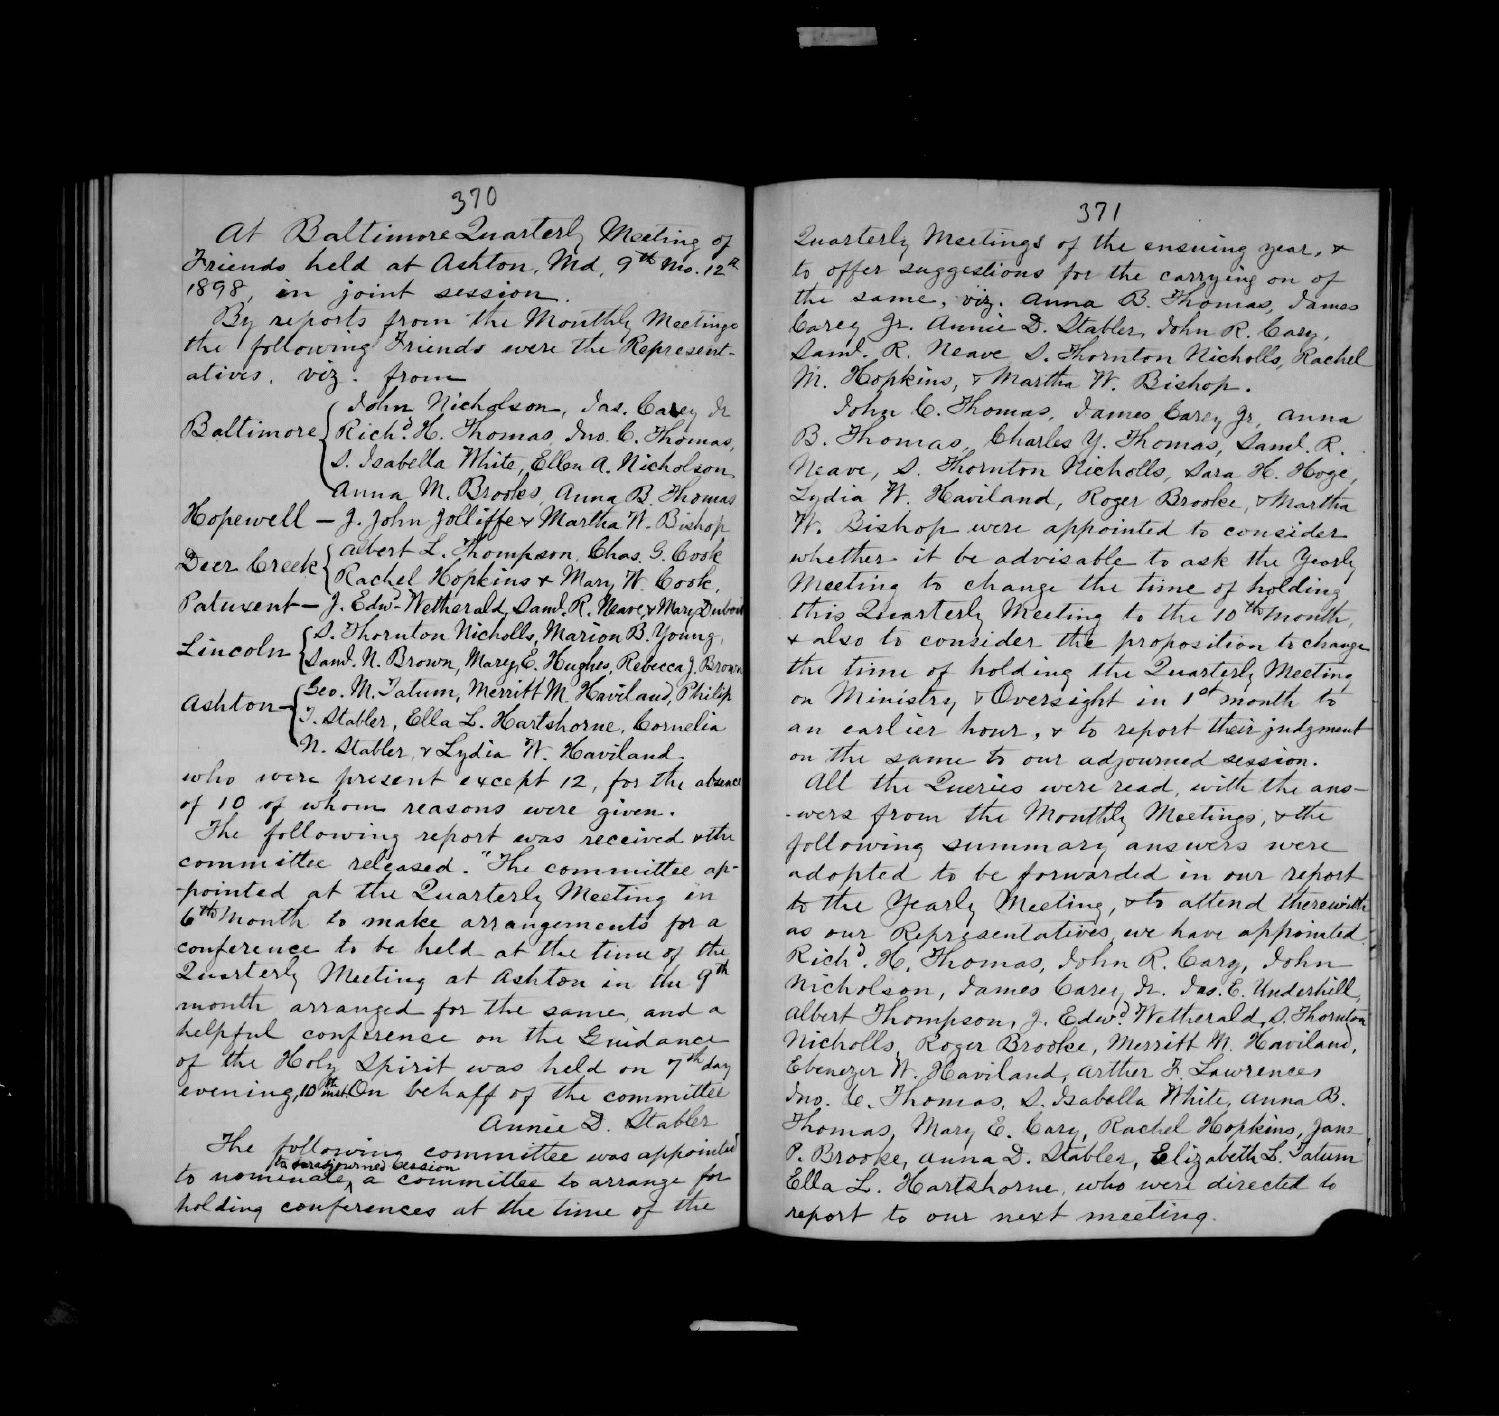 370
At Baltimore Quarterly Meeting of
Friends held at Ashton, Md, 9th Mo. 12th
1898, in joint session.
By reports from the Monthly Meetings
the following Friends were the Represent-
atives. viz. from
Baltimore { John Nicholson, Jas. Carey Jr
Richd. H. Thomas, Jno. C. Thomas,
S. Isabella White, Ellen A. Nicholson
Anna M. Brooks, Anna B. Thomas
Hopewell — J. John Jolliffe & Martha W. Bishop
Deer Creek { Albert L. Thompson, Chas. G. Cook
Rachel Hopkins & Mary W. Cook,
Patuxent — J. Edwd. Wetherald, Saml. R. Neave, & Mary Dubois
Lincoln { S. Thornton Nicholls, Marion B. Young,
Saml. N. Brown, Mary E. Hughes, Rebecca J. Brown
Ashton — { Geo. M. Tatum, Merritt M. Haviland, Philip
T. Stabler, Ella L. Hartshorne, Cornelia
N. Stabler, & Lydia W. Haviland.
who were present except 12, for the absence
of 10 of whom reasons were given.
The following report was received & the
committee released. "The committee ap-
-pointed at the Quarterly Meeting in
6th Month to make arrangements for a
conference to be held at the time of the
Quarterly Meeting at Ashton in the 9th
month arranged for the same, and a
helpful conference on the Guidance
of the Holy Spirit was held on 7th day
evening, 10th inst. On behalf of the committee
Annie D. Stabler
The following committee was appointed
to our adjourned session
to nominate, a committee to arrange for
holding conferences at the time of the
371
Quarterly Meetings of the ensuing year, &
to offer suggestions for the carrying on of
the same, viz. Anna B. Thomas, James
Carey Jr. Annie D. Stabler, John R. Cary,
Saml. R. Neave S. Thornton Nicholls, Rachel
M. Hopkins, & Martha W. Bishop.
John C. Thomas, James Carey Jr, Anna
B. Thomas, Charles Y. Thomas, Saml. R.
Neave, S. Thornton Nicholls, Sara H. Hoge,
Lydia W. Haviland, Roger Brooke, & Martha
W. Bishop were appointed to consider
whether it be advisable to ask the Yearly
Meeting to change the time of holding
this Quarterly Meeting to the 10th month,
& also to consider the proposition to change
the time of holding the Quarterly Meeting
on Ministry & Oversight in 1st month to
an earlier hour, & to report their judgment
on the same to our adjourned session.
All the Queries were read, with the ans-
-wers from the Monthly Meetings, & the
following summary answers were
adopted to be forwarded in our report
to the Yearly Meeting, & to attend therewith
as our Representatives, we have appointed
Richd. H. Thomas, John R. Cary, John
Nicholson, James Carey Jr. Jas. E. Underhill,
Albert Thompson, J. Edwd. Wetherald, S. Thornton
Nicholls, Roger Brooke, Merritt M. Haviland,
Ebenezer W. Haviland, Arther F. Lawrences
Jno. C. Thomas, S. Isabella White, Anna B.
Thomas, Mary E. Cary, Rachel Hopkins, Jane
P. Brooke, Anna D. Stabler, Elizabeth L. Tatum
Ella L. Hartshorne, who were directed to
report to our next meeting.